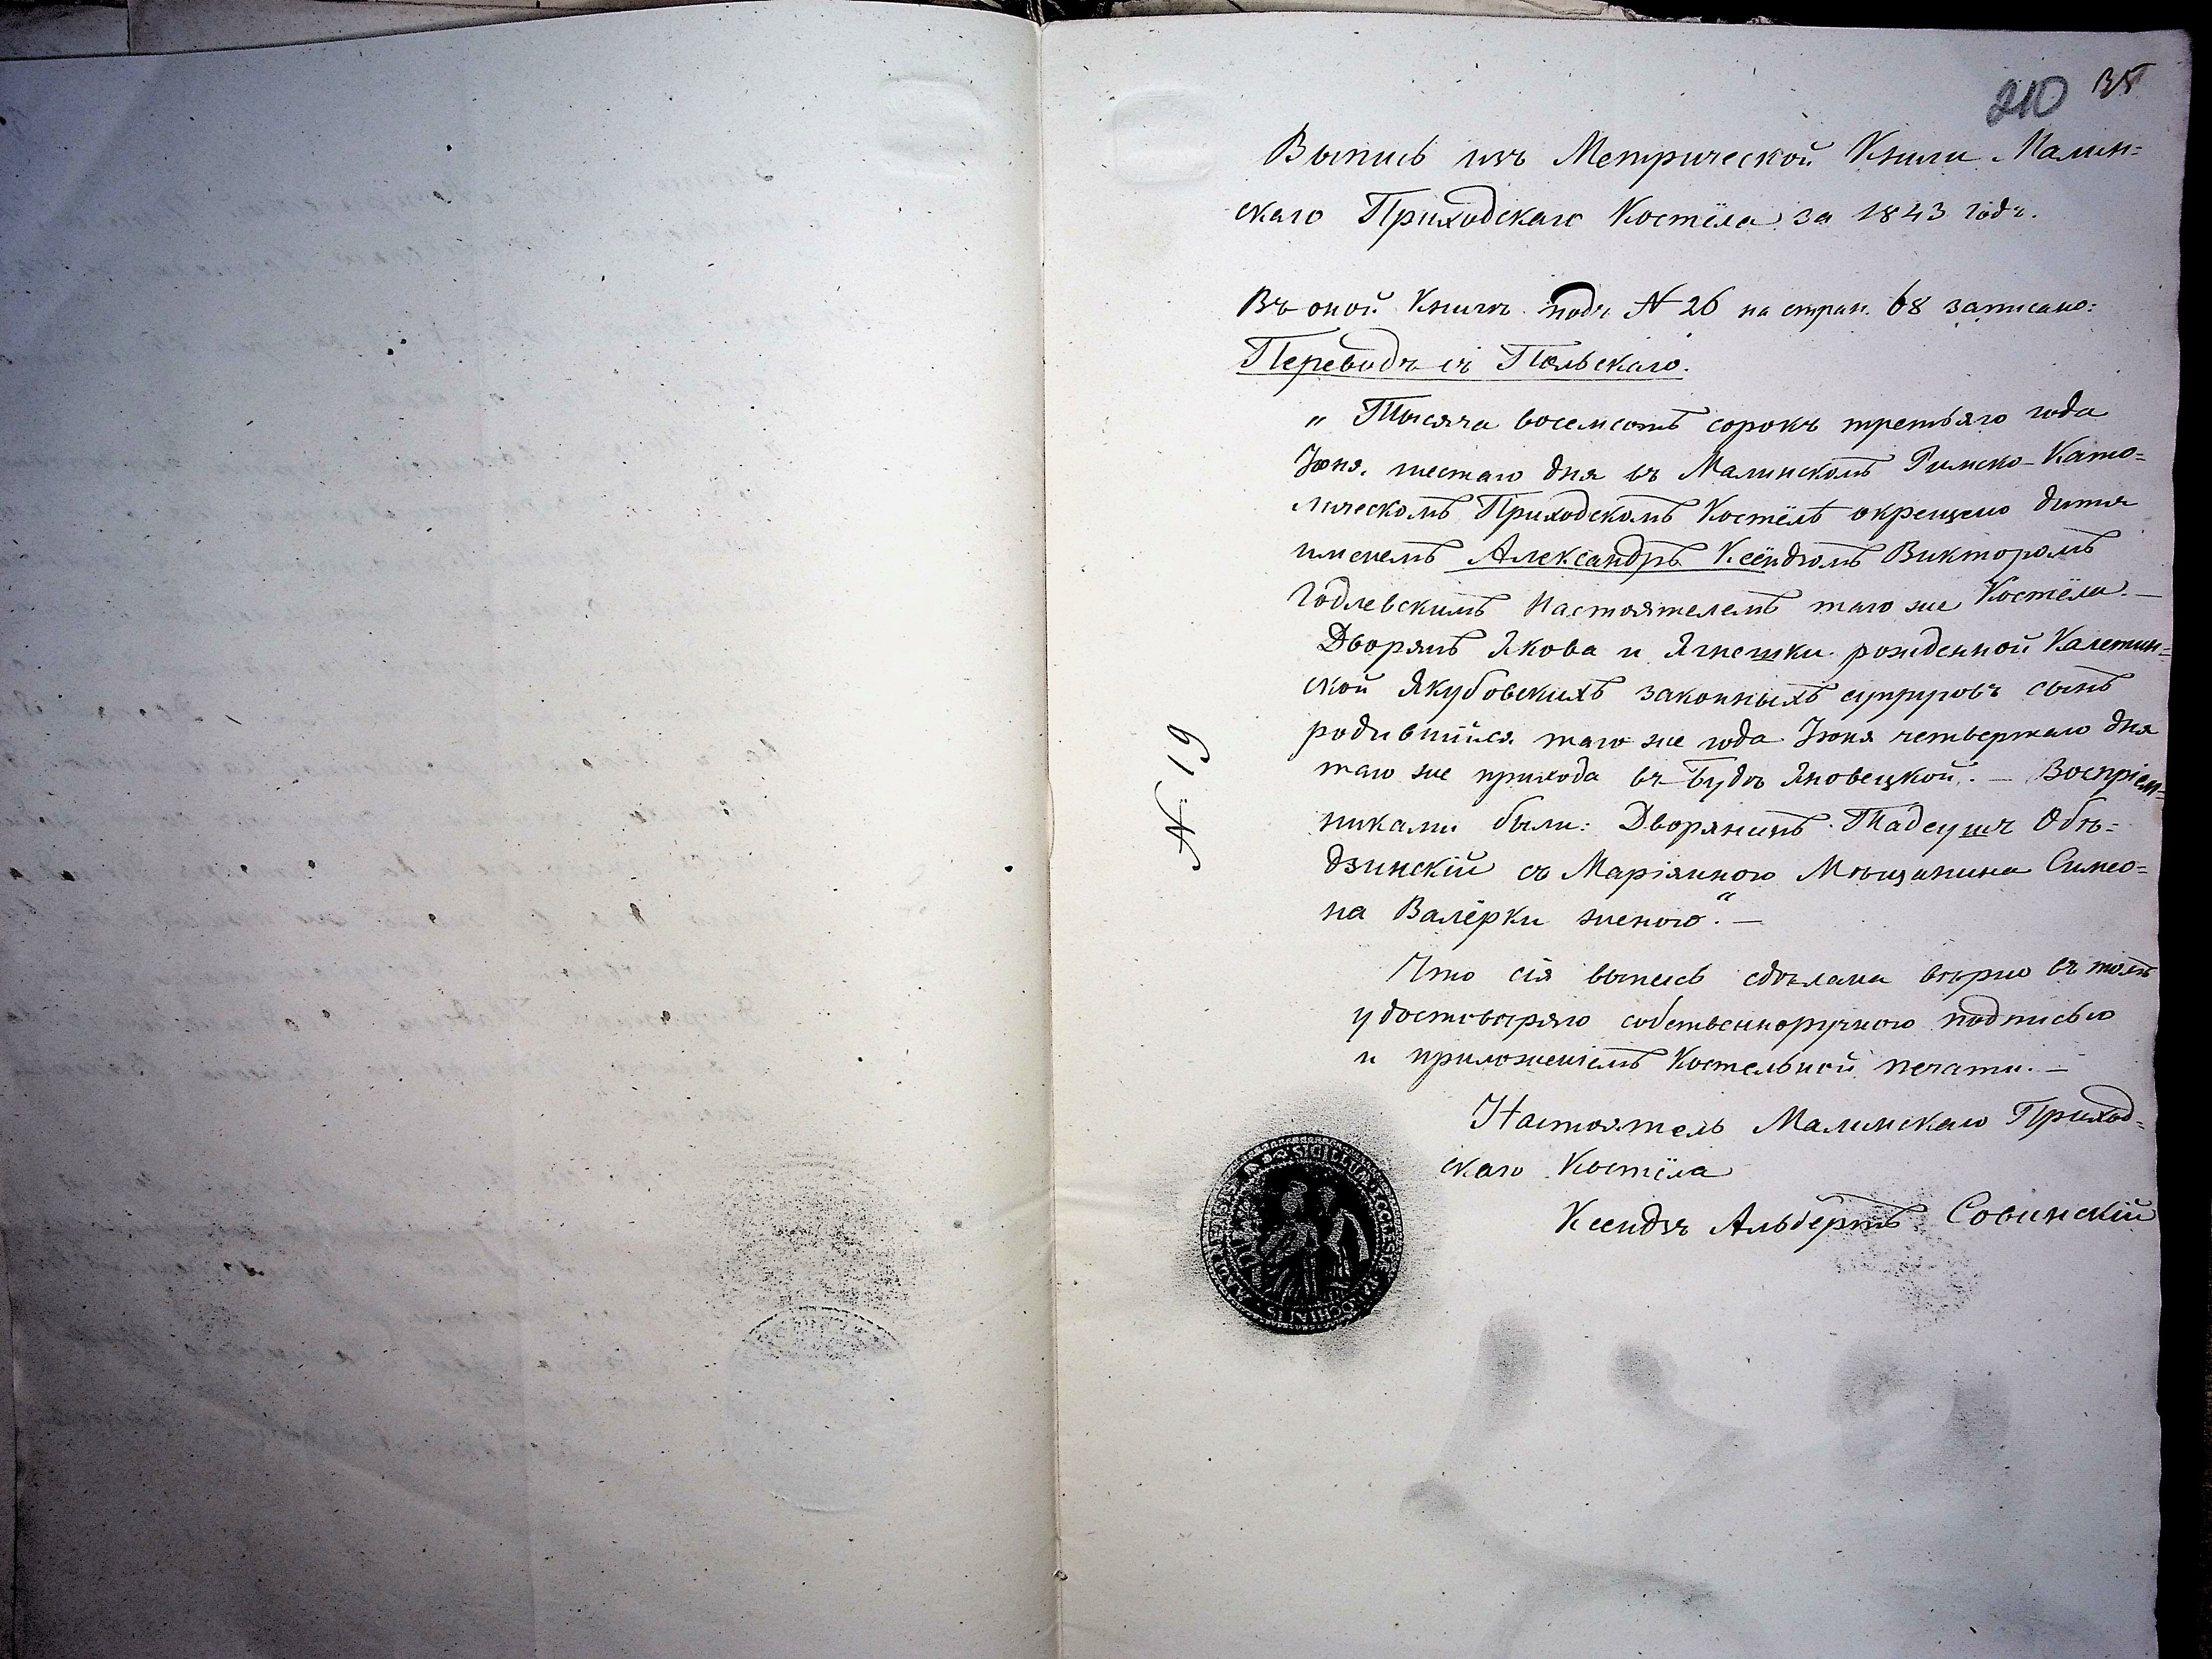 210 35
Выпись изъ Метрической Книги Малин=
скаго Приходскаго Костёла за 1843 годъ.
Въ оной Книгѣ подъ N 26 на стран. 68 записано:
Переводъ съ Польскаго.
„ Тысяча восемсотъ сорокъ третьяго года
Іюня шестаго дня въ Малинскомъ Римско-Като=
лическомъ Приходскомъ Костёлѣ окрещено дитя
именемъ Александръ Ксёндзомъ Викторомъ
Годлевскимъ Настоятелемъ того же Костёла. —
Дворянъ Якова и Ягнешки рожденной Калетин=
ской Якубовскихъ законныхъ супруговъ сынъ
родившійся того же года Іюня четвертаго дня
того же прихода въ Будѣ Яновецкой. — Воспріем=
никами были: Дворянинъ Тадеушъ Обѣ=
дзинскій съ Маріянною Мѣщанина Симео=
на Валёрки женою.“ —
Что сія выпись сдѣлана вѣрно въ томъ
удостовѣряю собственноручною подписью
и приложеніемъ Костельной печати. —
Настоятель Малинскаго Приход=
скаго Костёла
Ксендзъ Альбертъ Совинскій
N. 19
SIGILLUM ECCLESIÆ PAROCHIALIS